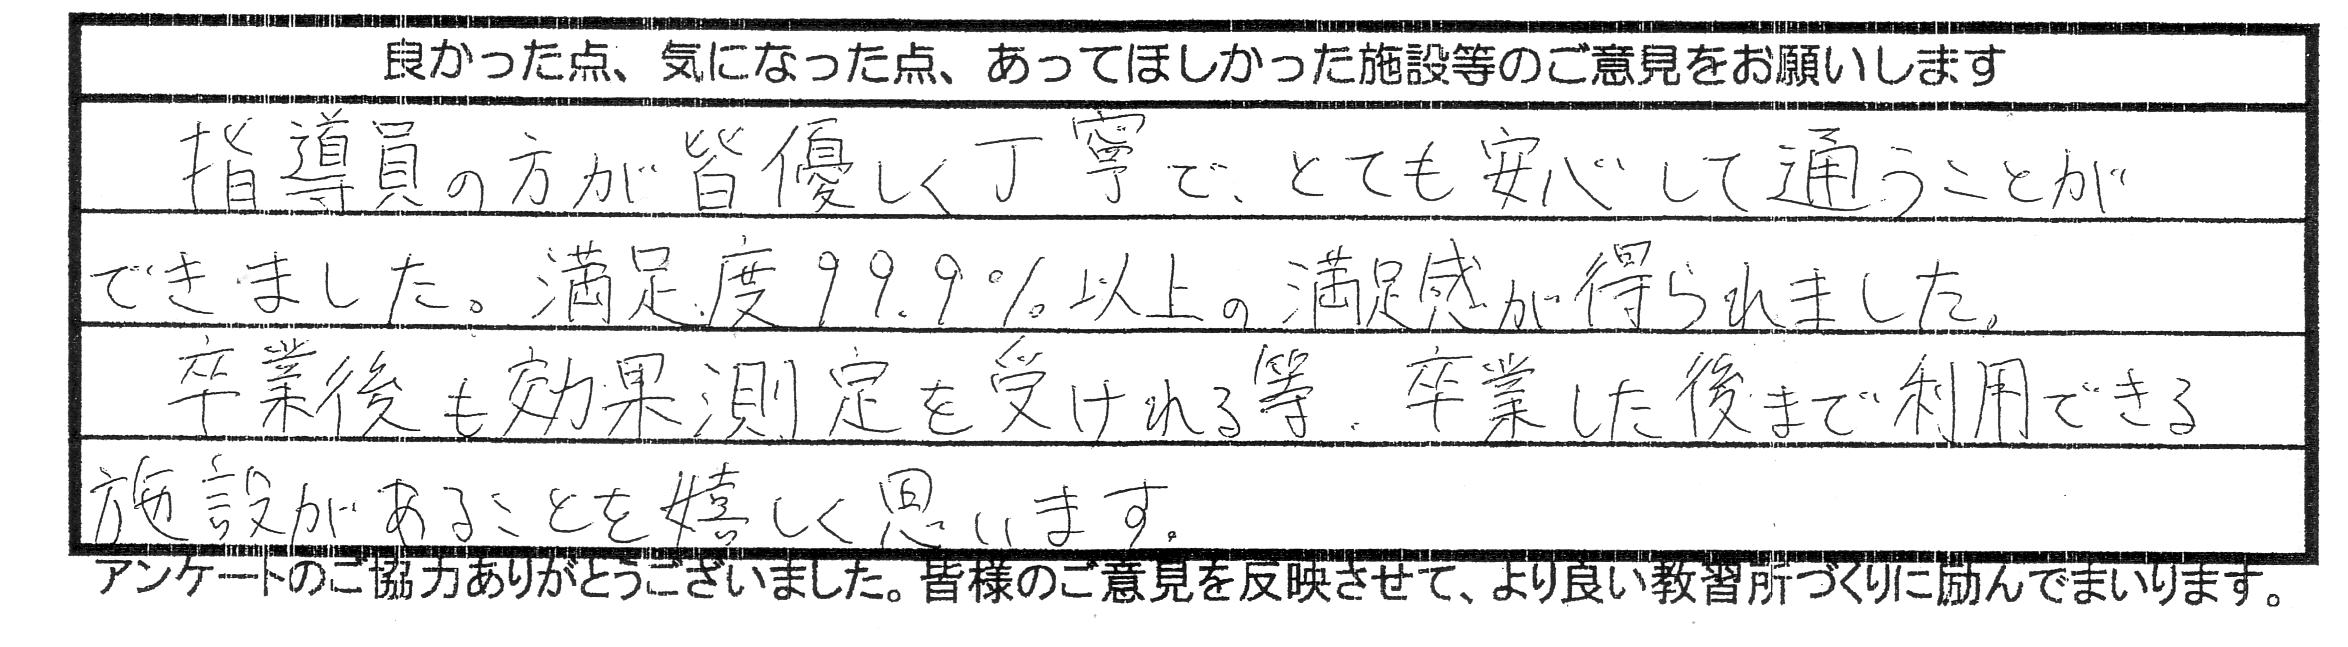 良かった点、気になった点、あってほしかった施設等のご意見をお願いします
指導員の方が皆優しく丁寧で、とても安心して通うことが
できました。満足度99.9%以上の満足感が得られました。
卒業後も効果測定を受けれる等、卒業した後まで利用できる
施設があることを嬉しく思います。
アンケートのご協力ありがとうございました。皆様のご意見を反映させて、より良い教習所づくりに励んでまいります。